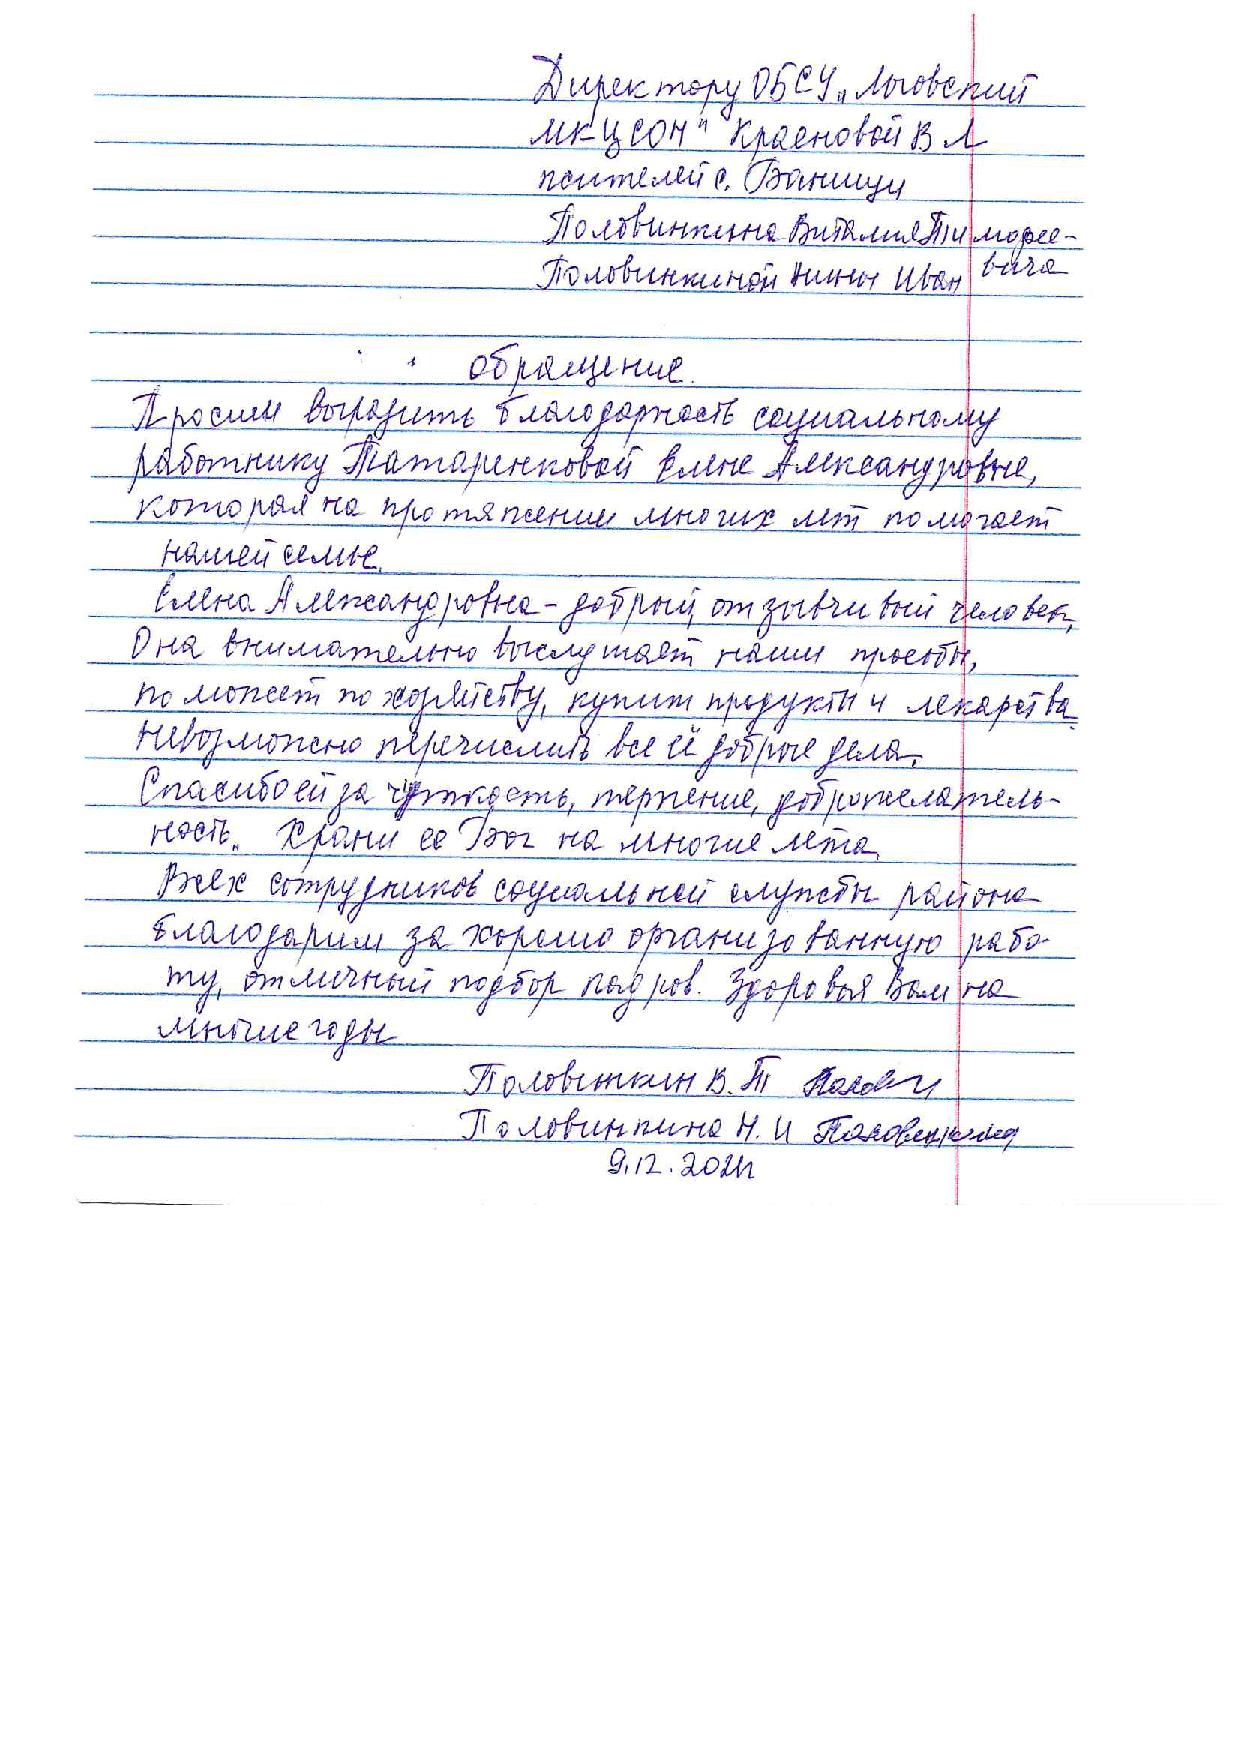 Директору ОБСУ „Льговский
МКЦСОН" Красновой В Л
жителей с. Банищи
Половинкина Виталия Тимофее-
вича
Половинкиной Нины Иван
обращение.
Просим выразить благодарность социальному
работнику Татаренковой Елене Александровне,
которая на протяжении многих лет помогает
нашей семье.
Елена Александровна - добрый, отзывчивый человек,
Она внимательно выслушает наши просьбы,
поможет по хозяйству, купит продукты и лекарства.
Невозможно перечислить все её добрые дела.
Спасибо ей за чуткость, терпение, доброжелатель-
ность. Храни ее Бог на многие лета.
Всех сотрудников социальной службы района
благодарим за хорошо организованную рабо-
ту, отличный подбор кадров. Здоровья Вам на
многие годы
Половинкин В. Т
Половинкина Н. И Половинкина
9.12.2021г